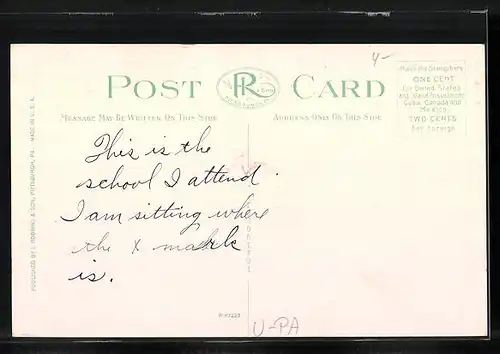 4-
POST CARD
R
& SON
PITTSBURGH, PA.
Place the Stamp here
ONE CENT
For United States
and Island Possessions
Cuba, Canada and
Mexico
TWO CENTS
For Foreign
MESSAGE MAY BE WRITTEN ON THIS SIDE
ADDRESS ONLY ON THIS SIDE
This is the
school I attend.
I am sitting where
the x mark
is.
PUBLISHED BY I. ROBBINS & SON, PITTSBURGH, PA. MADE IN U. S. A.
U-PA